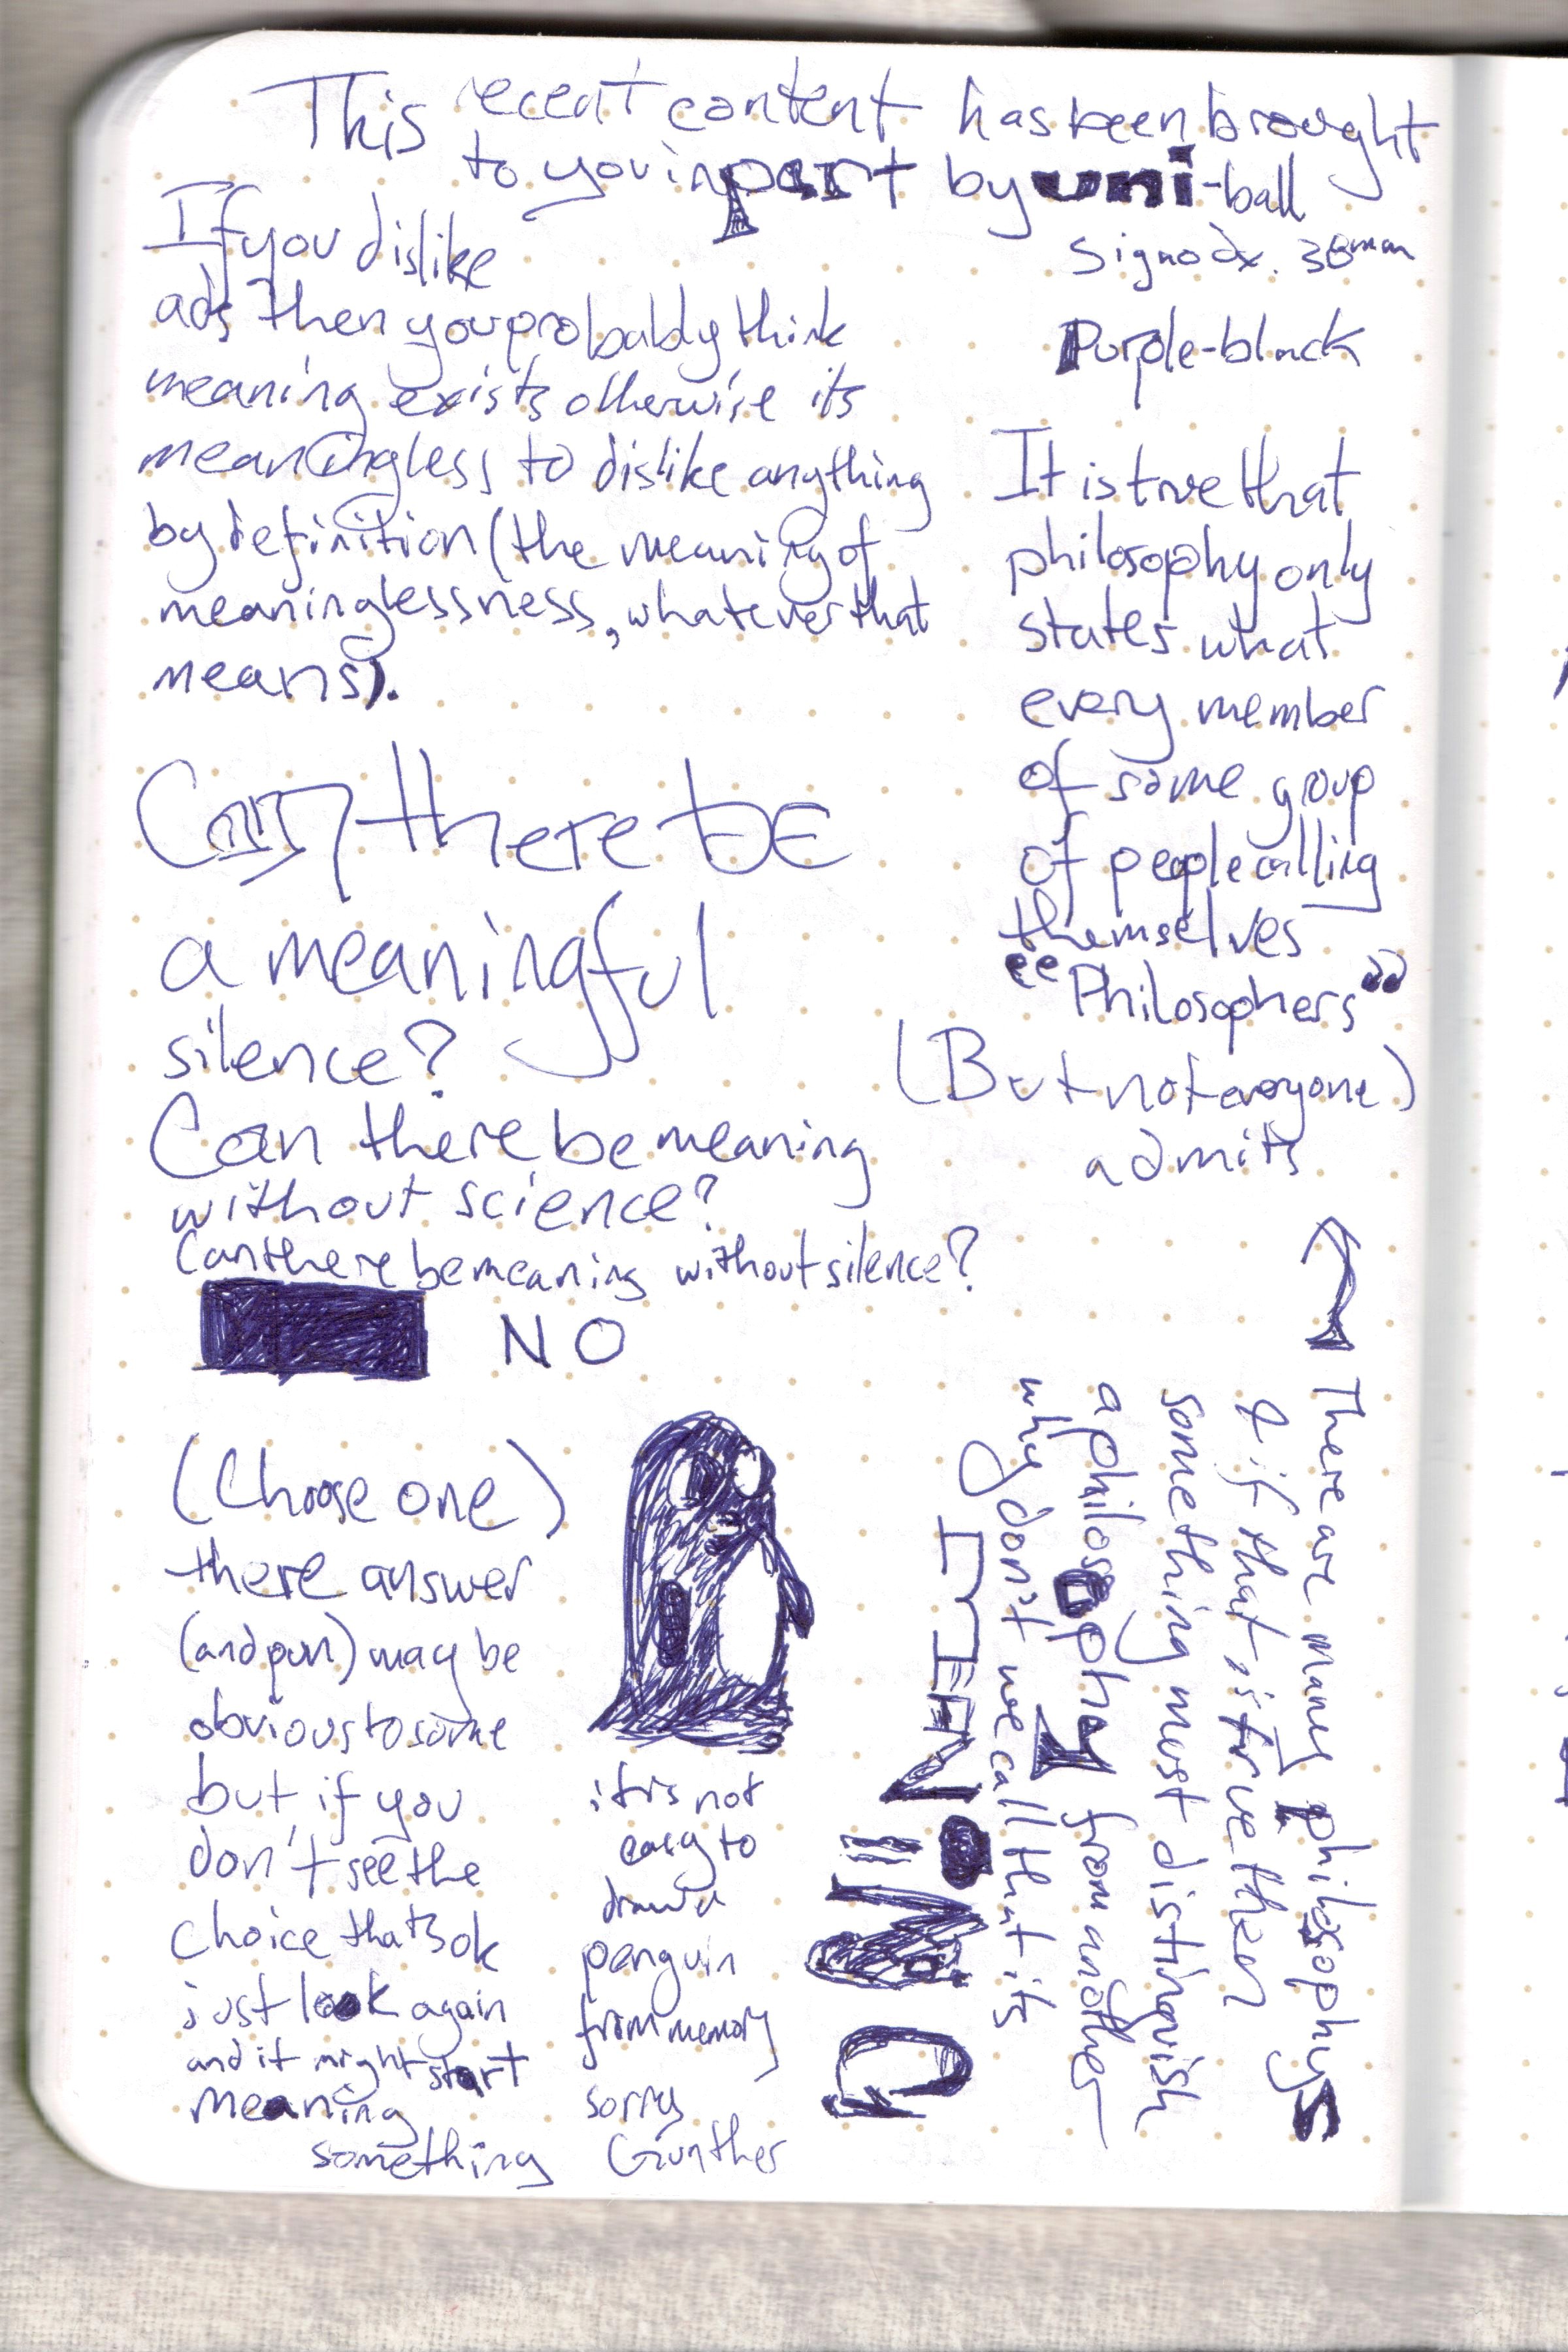 This recent content has been brought
to you in part by uni-ball
Signo dx .38mm
Purple-black
If you dislike
ads then you probably think
meaning exists otherwise its
meaningless to dislike anything
by definition (the meaning of
meaninglessness, whatever that
means).
Can there be
a meaningful
silence?
Can there be meaning
without science?
Can there be meaning without silence?
NO
(Choose one)
there answer
(and pun) may be
obvious to some
but if you
don't see the
choice that's ok
just look again
and it might start
meaning
something
it is not
easy to
draw a
penguin
from memory
sorry
Günther
It is true that
philosophy only
states what
every member
of some group
of people calling
themselves
"Philosophers"
(But not everyone)
admits
There are many philosophys
& if that is true then
something must distinguish
a philosophy from another
why don't we call that its